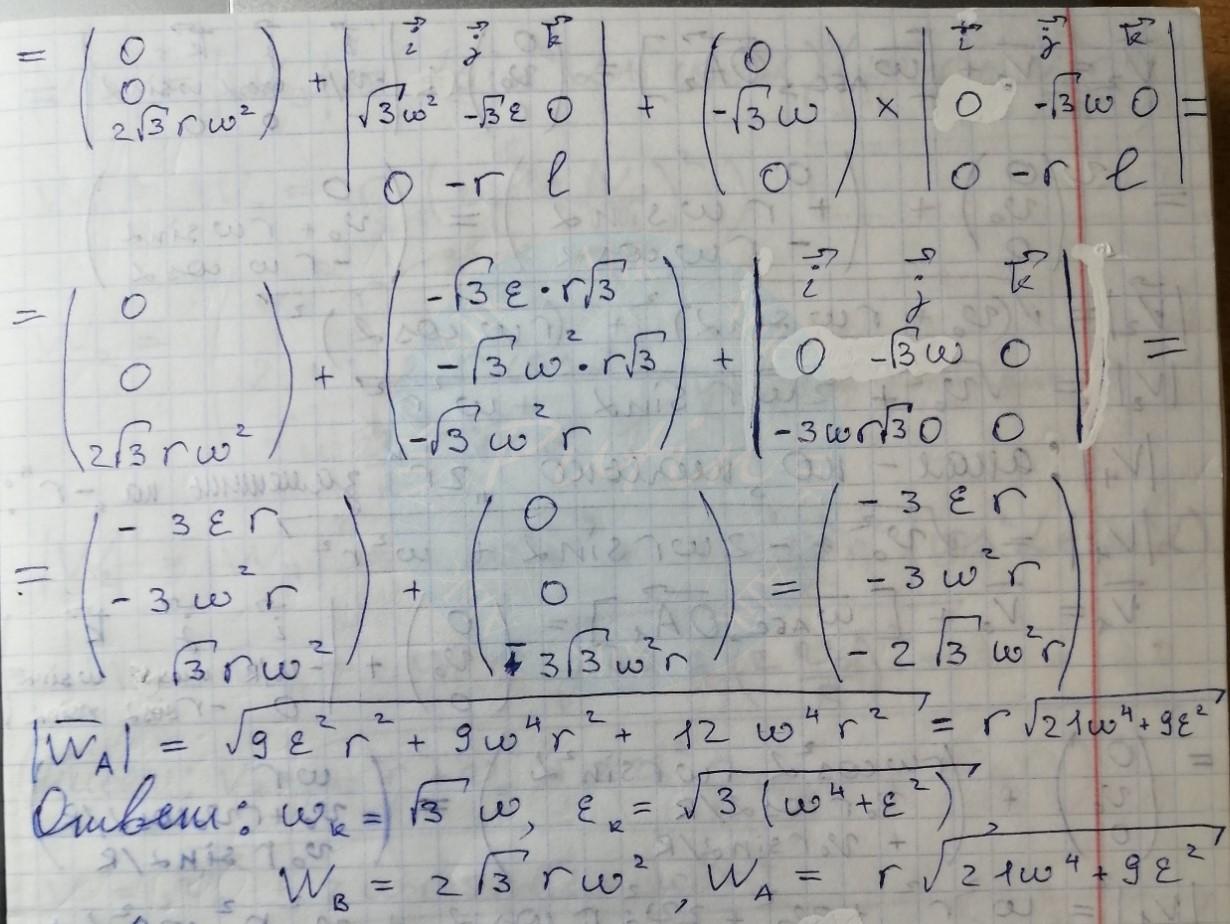 = (0 0 2√3 r ω²) + |i⃗ j⃗ k⃗ √3ω² -√3ε 0 0 -r l| + (0 -√3ω 0) × |i⃗ j⃗ k⃗ 0 -√3ω 0 0 -r l| =
= (0 0 2√3 r ω²) + (-√3 ε · r√3 -√3 ω² · r√3 -√3 ω² r) + |i⃗ j⃗ k⃗ 0 -√3ω 0 -3ωr√3 0 0| =
= (-3 ε r -3 ω² r √3 r ω²) + (0 0 -3√3 ω² r) = (-3 ε r -3 ω² r -2√3 ω² r)
|W̅_A| = √(9 ε² r² + 9 ω⁴ r² + 12 ω⁴ r²) = r √(21ω⁴ + 9ε²)
Ответ: ω_к = √3 ω, ε_к = √(3 (ω⁴ + ε²)),
W_B = 2√3 r ω², W_A = r √(21ω⁴ + 9ε²)